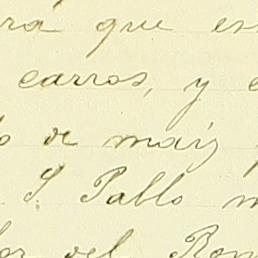 rá que es
carros, y e
o de maíz
S. Pablo m
del Rom